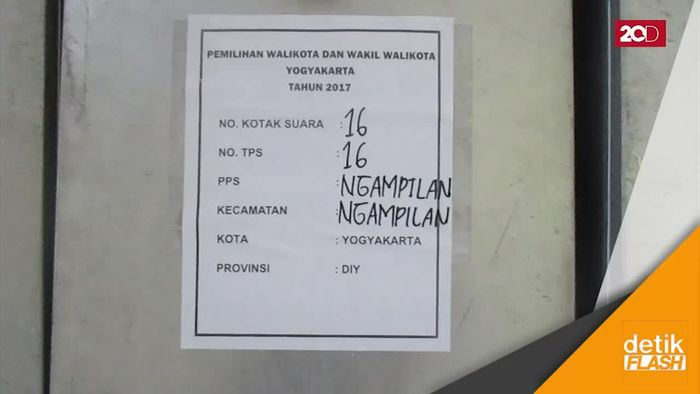 20D
PEMILIHAN WALIKOTA DAN WAKIL WALIKOTA
YOGYAKARTA
TAHUN 2017
NO. KOTAK SUARA : 16
NO. TPS : 16
PPS : NGAMPILAN
KECAMATAN : NGAMPILAN
KOTA : YOGYAKARTA
PROVINSI : DIY
detik
FLASH